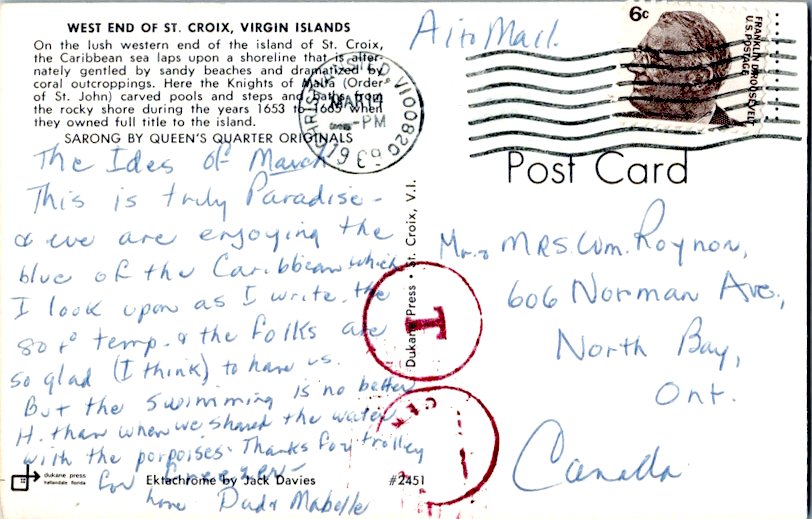 WEST END OF ST. CROIX, VIRGIN ISLANDS
On the lush western end of the island of St. Croix,
the Caribbean sea laps upon a shoreline that is alter-
nately gentled by sandy beaches and dramatized by
coral outcroppings. Here the Knights of Malta (Order
of St. John) carved pools and steps and baths from
the rocky shore during the years 1653 to 1665 when
they owned full title to the island.
SARONG BY QUEEN'S QUARTER ORIGINALS
The Ides of March
This is truly Paradise -
& we are enjoying the
blue of the Caribbean which
I look upon as I write. the
80+° temp. & the folks are
so glad (I think) to have us.
But the swimming is no better
H. than when we shared the water
with the porpoises. Thanks for trolley
for
Dud & Mabelle
dukane press
hallandale florida
Ektachrome by Jack Davies
#2451
Dukane Press • St. Croix, V.I.
Air Mail.
6c
FRANKLIN D. ROOSEVELT
U.S. POSTAGE
MAR 14
PM
Post Card
Mr. & MRS. Wm. Roynon,
606 Norman Ave.,
North Bay,
Ont.
Canada
T